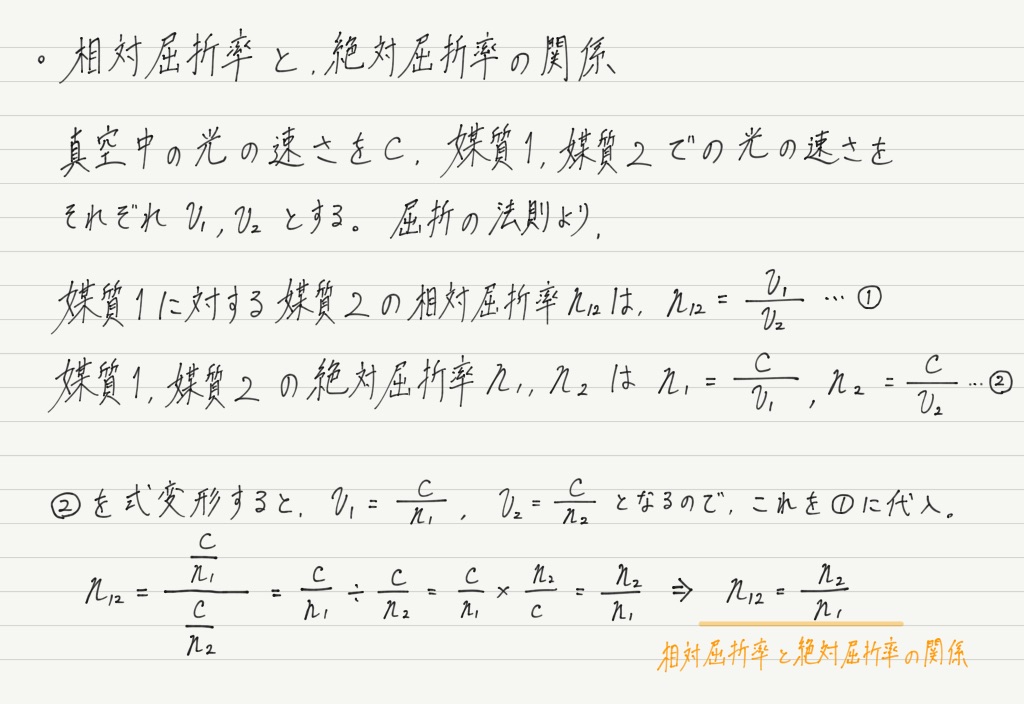 。相対屈折率と，絶対屈折率の関係
真空中の光の速さをc，媒質1，媒質2での光の速さを
それぞれ v₁，v₂ とする。屈折の法則より，
媒質1に対する媒質2の相対屈折率n₁₂は，n₁₂ = v₁/v₂ … ①
媒質1，媒質2の絶対屈折率n₁，n₂ は n₁ = c/v₁，n₂ = c/v₂ … ②
②を式変形すると，v₁ = c/n₁，v₂ = c/n₂ となるので，これを①に代入。
n₁₂ = (c/n₁)/(c/n₂) = c/n₁ ÷ c/n₂ = c/n₁ × n₂/c = n₂/n₁ ⇒ n₁₂ = n₂/n₁
相対屈折率と絶対屈折率の関係